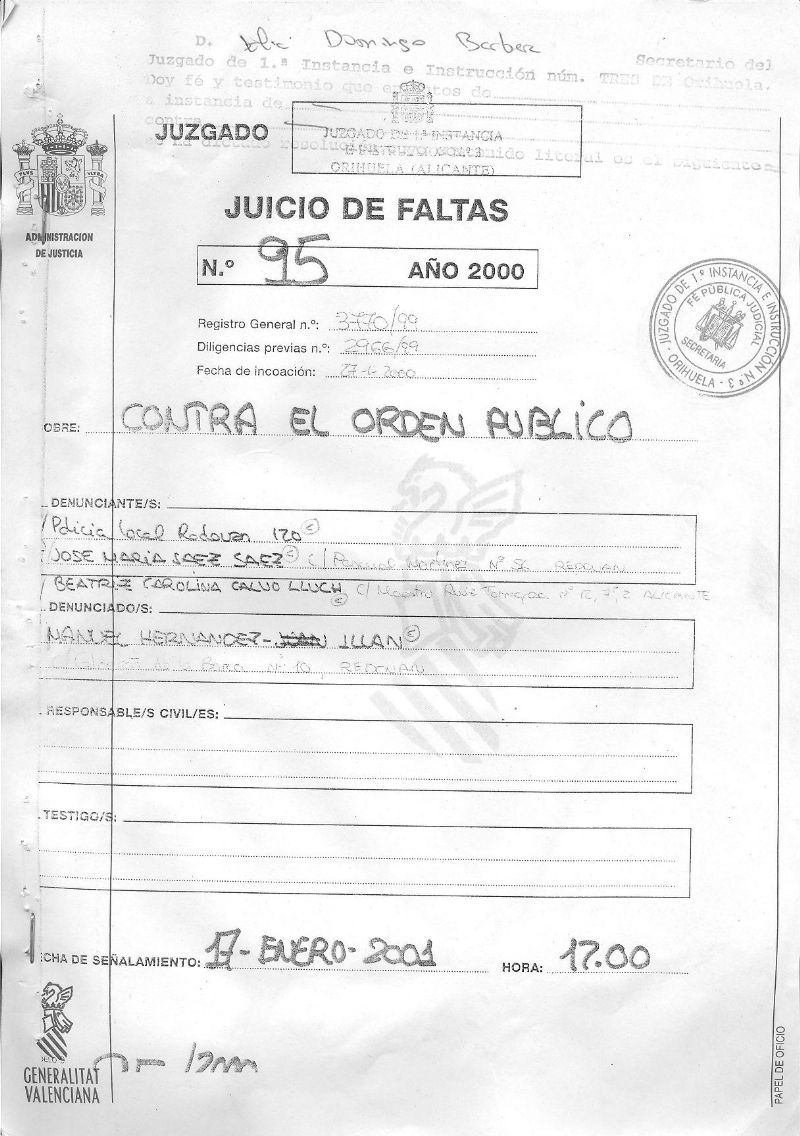 D. Domingo Barbera
Juzgado de 1.ª Instancia e Instrucción núm. TRES DE Orihuela. Secretario del
Doy fé y testimonio que en autos de
a instancia de
contra
JUZGADO
JUZGADO DE 1ª INSTANCIA
ORIHUELA (ALICANTE)
JUICIO DE FALTAS
N.º 95 AÑO 2000
ADMINISTRACION
DE JUSTICIA
Registro General n.º: 3770/99
Diligencias previas n.º: 2966/99
Fecha de incoación: 2000
JUZGADO DE 1ª INSTANCIA E INSTRUCCIÓN Nº 3 - ORIHUELA -
FÉ PÚBLICA JUDICIAL
SECRETARIA
OBRE: CONTRA EL ORDEN PUBLICO
DENUNCIANTE/S:
Policia Local Redovan 120 c
JOSE MARIA SAEZ SAEZ c C/ Pascual Martinez Nº 56 REDOVAN
BEATRIZ CAROLINA CALVO LLUCH c C/ Maestro Nº 12, 7º, 2 ALICANTE
DENUNCIADO/S:
MANUEL HERNANDEZ- ILLAN c
Nº 10, REDOVAN
RESPONSABLE/S CIVIL/ES:
TESTIGO/S:
CHA DE SEÑALAMIENTO: 17-ENERO-2001 HORA: 17.00
GENERALITAT
VALENCIANA
PAPEL DE OFICIO